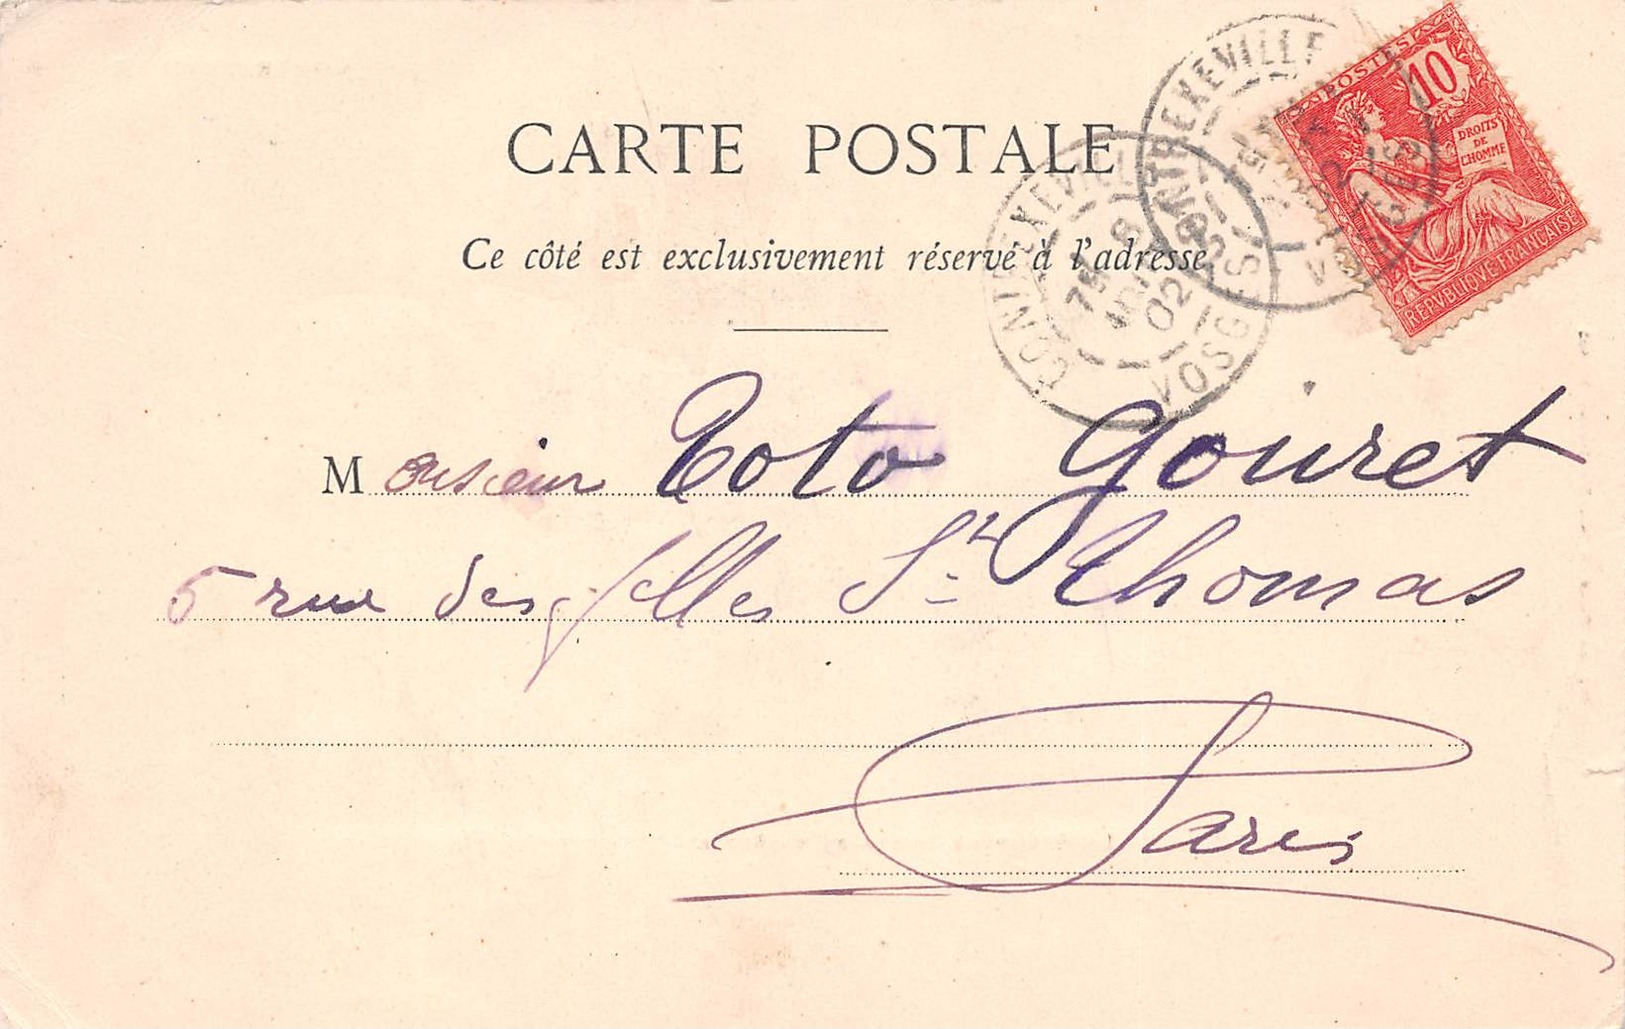 CARTE POSTALE
Ce côté est exclusivement réservé à l'adresse
POSTES
10
DROITS
DE
L'HOMME
REPVBLIQVE FRANÇAISE
CONTREXEVILLE
VOSGES
CONTREXEVILLE
8
02
VOSGES
Monsieur Toto Gouret
5 rue des filles St Thomas
Paris